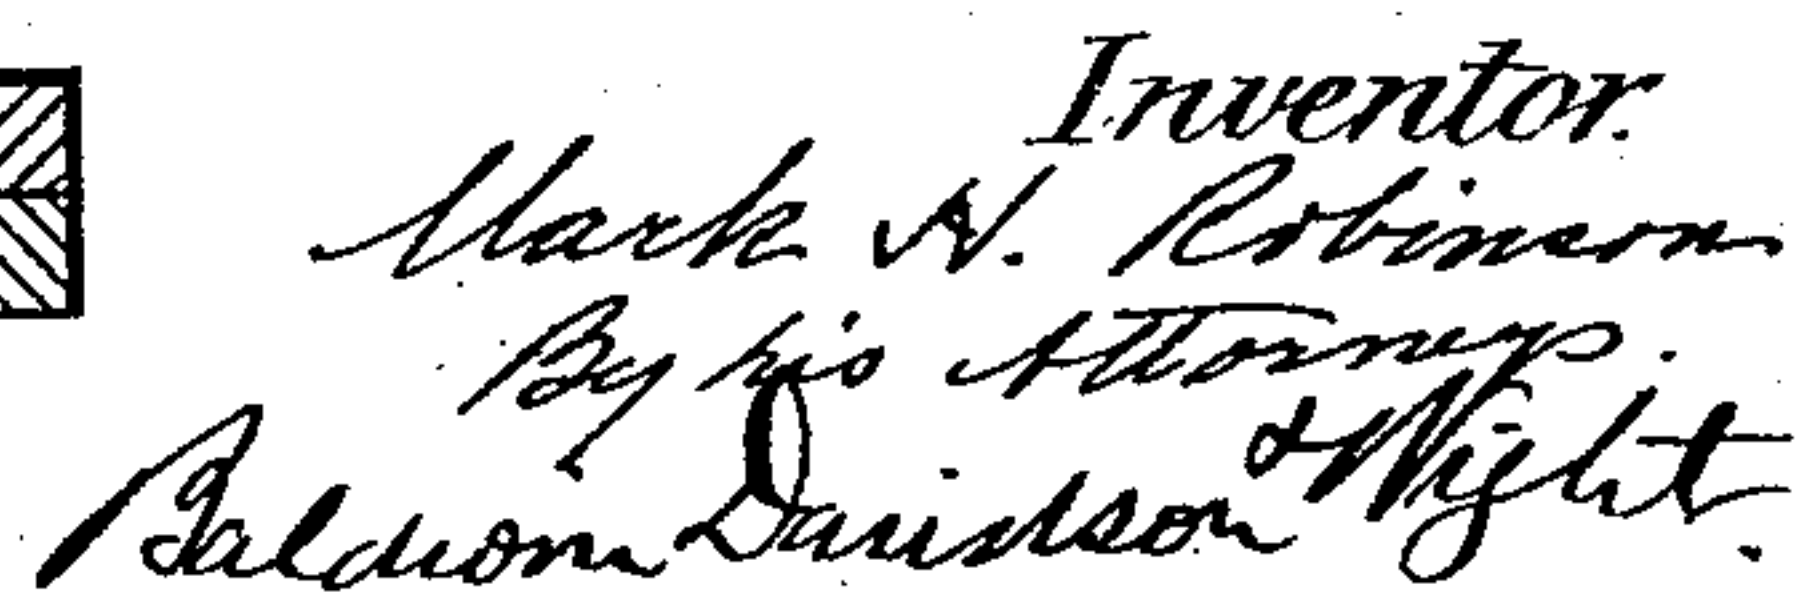 Inventor.
Mark W. Robinson
By his Attorneys.
Baldwin Davidson & Wight.